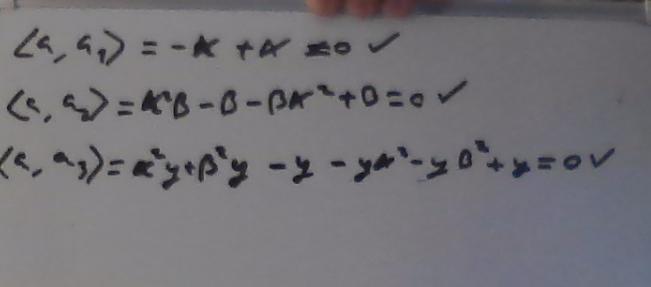 ⟨a, a₁⟩ = -α + α = 0 ✓
⟨a, a₂⟩ = α²β - β - βα² + β = 0 ✓
⟨a, a₃⟩ = α²y + β²y - y - yα² - yβ² + y = 0 ✓